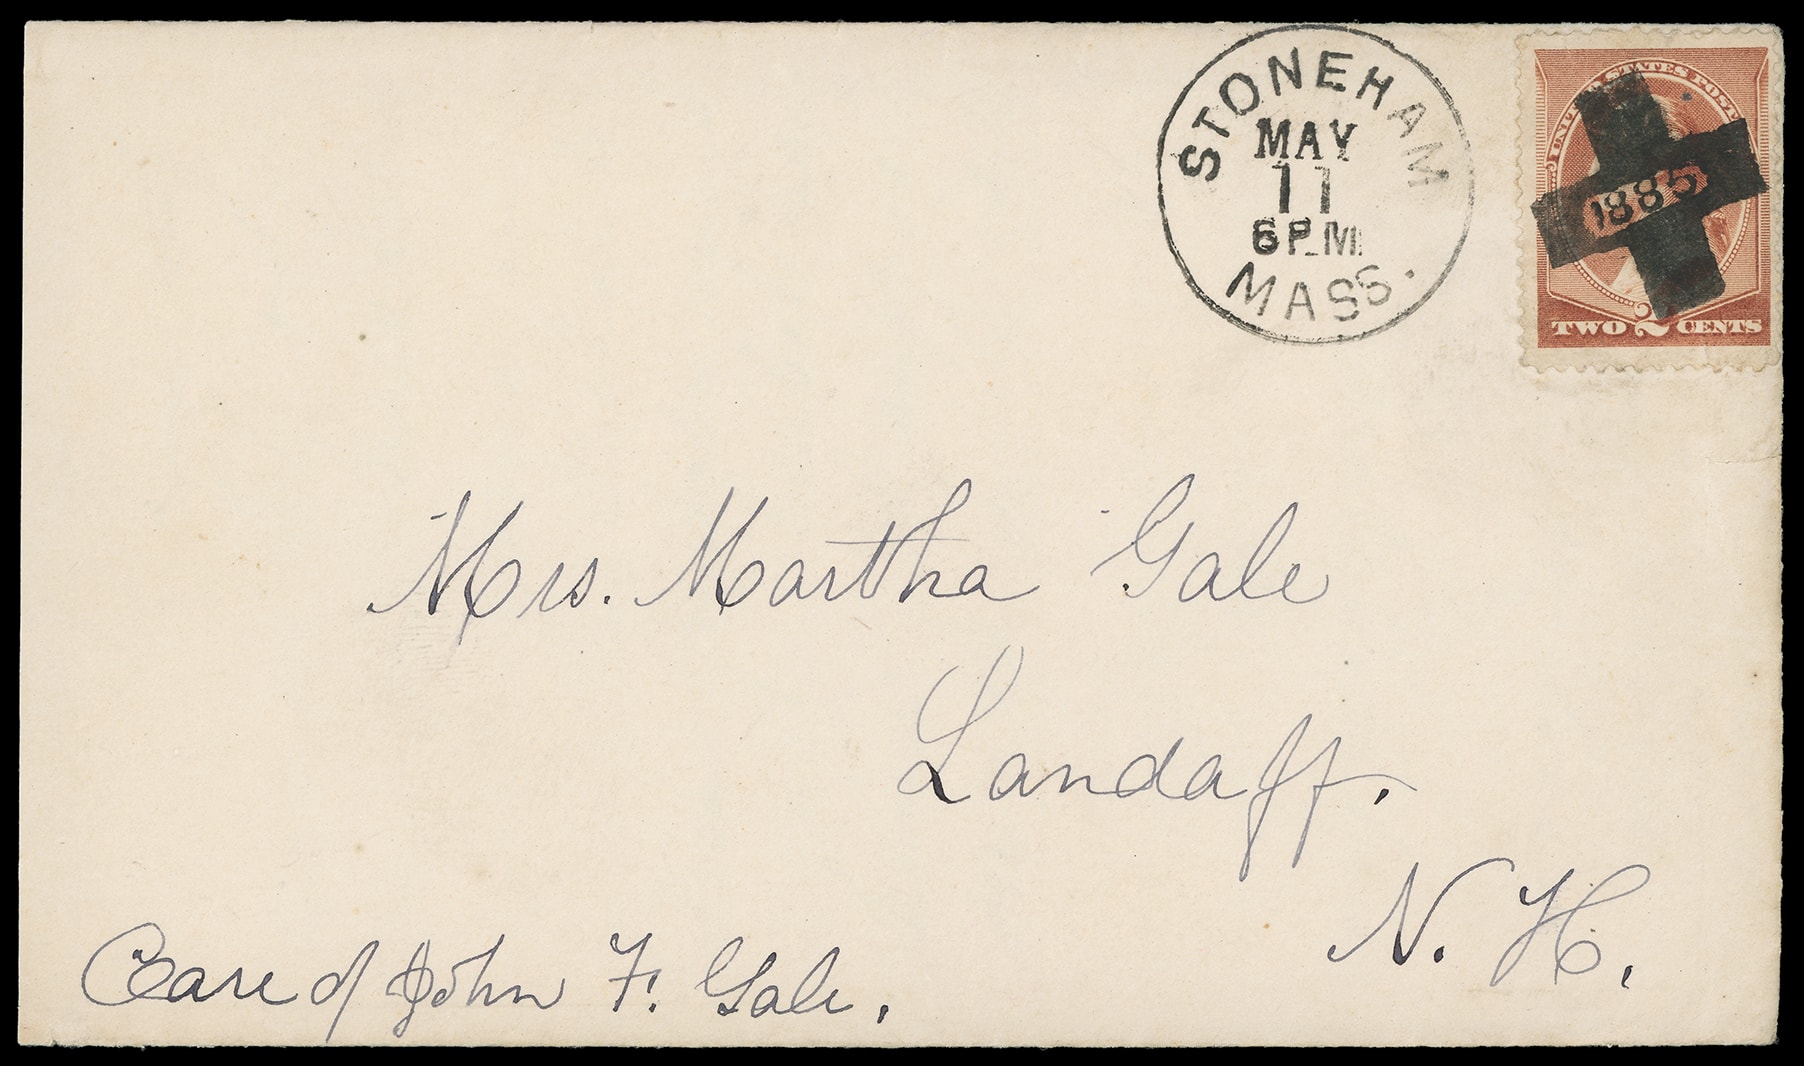 STONEHAM
MAY
11
6 P.M
MASS.
UNITED STATES POST
1885
TWO 2 CENTS
Mrs. Martha Gale
Landaff.
N. H.
Care of John F. Gale.